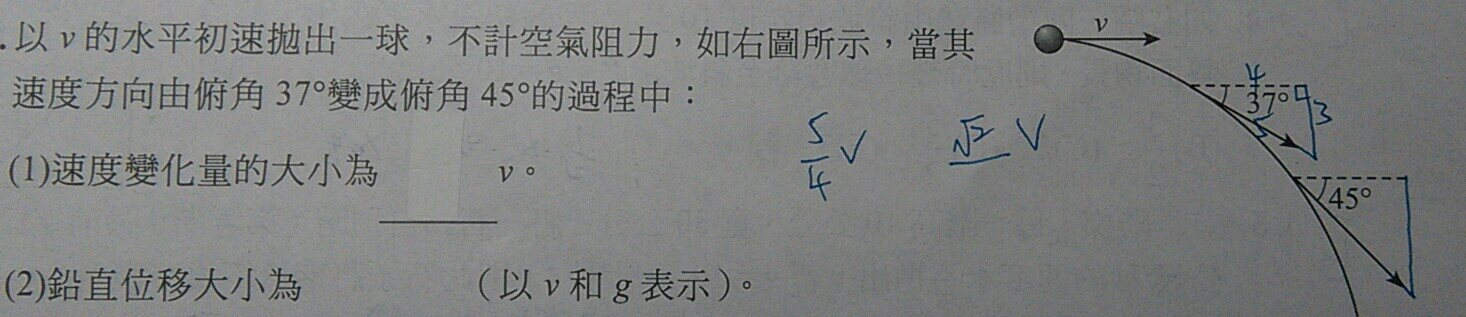 .以 v 的水平初速拋出一球，不計空氣阻力，如右圖所示，當其
速度方向由俯角 37°變成俯角 45°的過程中：
(1)速度變化量的大小為＿＿＿ v。
(2)鉛直位移大小為　　　（以 v 和 g 表示）。
5/4 v
√2 v
v
4
37°
5
3
45°